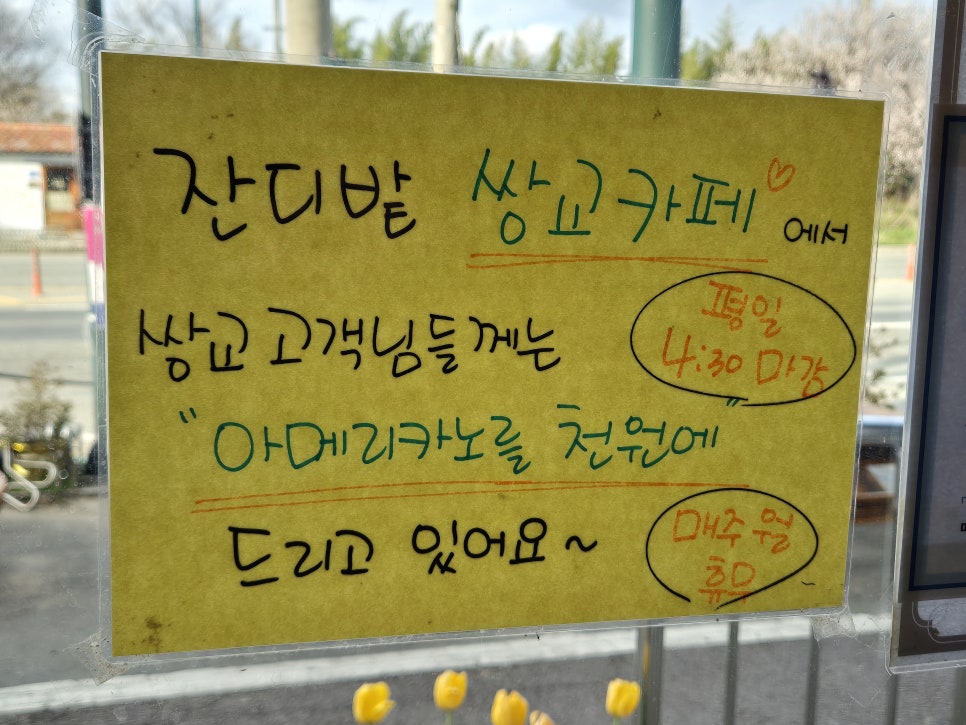 잔디밭 쌍교카페♡에서
쌍교 고객님들께는
평일
4:30 마감
"아메리카노를 천원에"
드리고 있어요~
매주 월
휴무